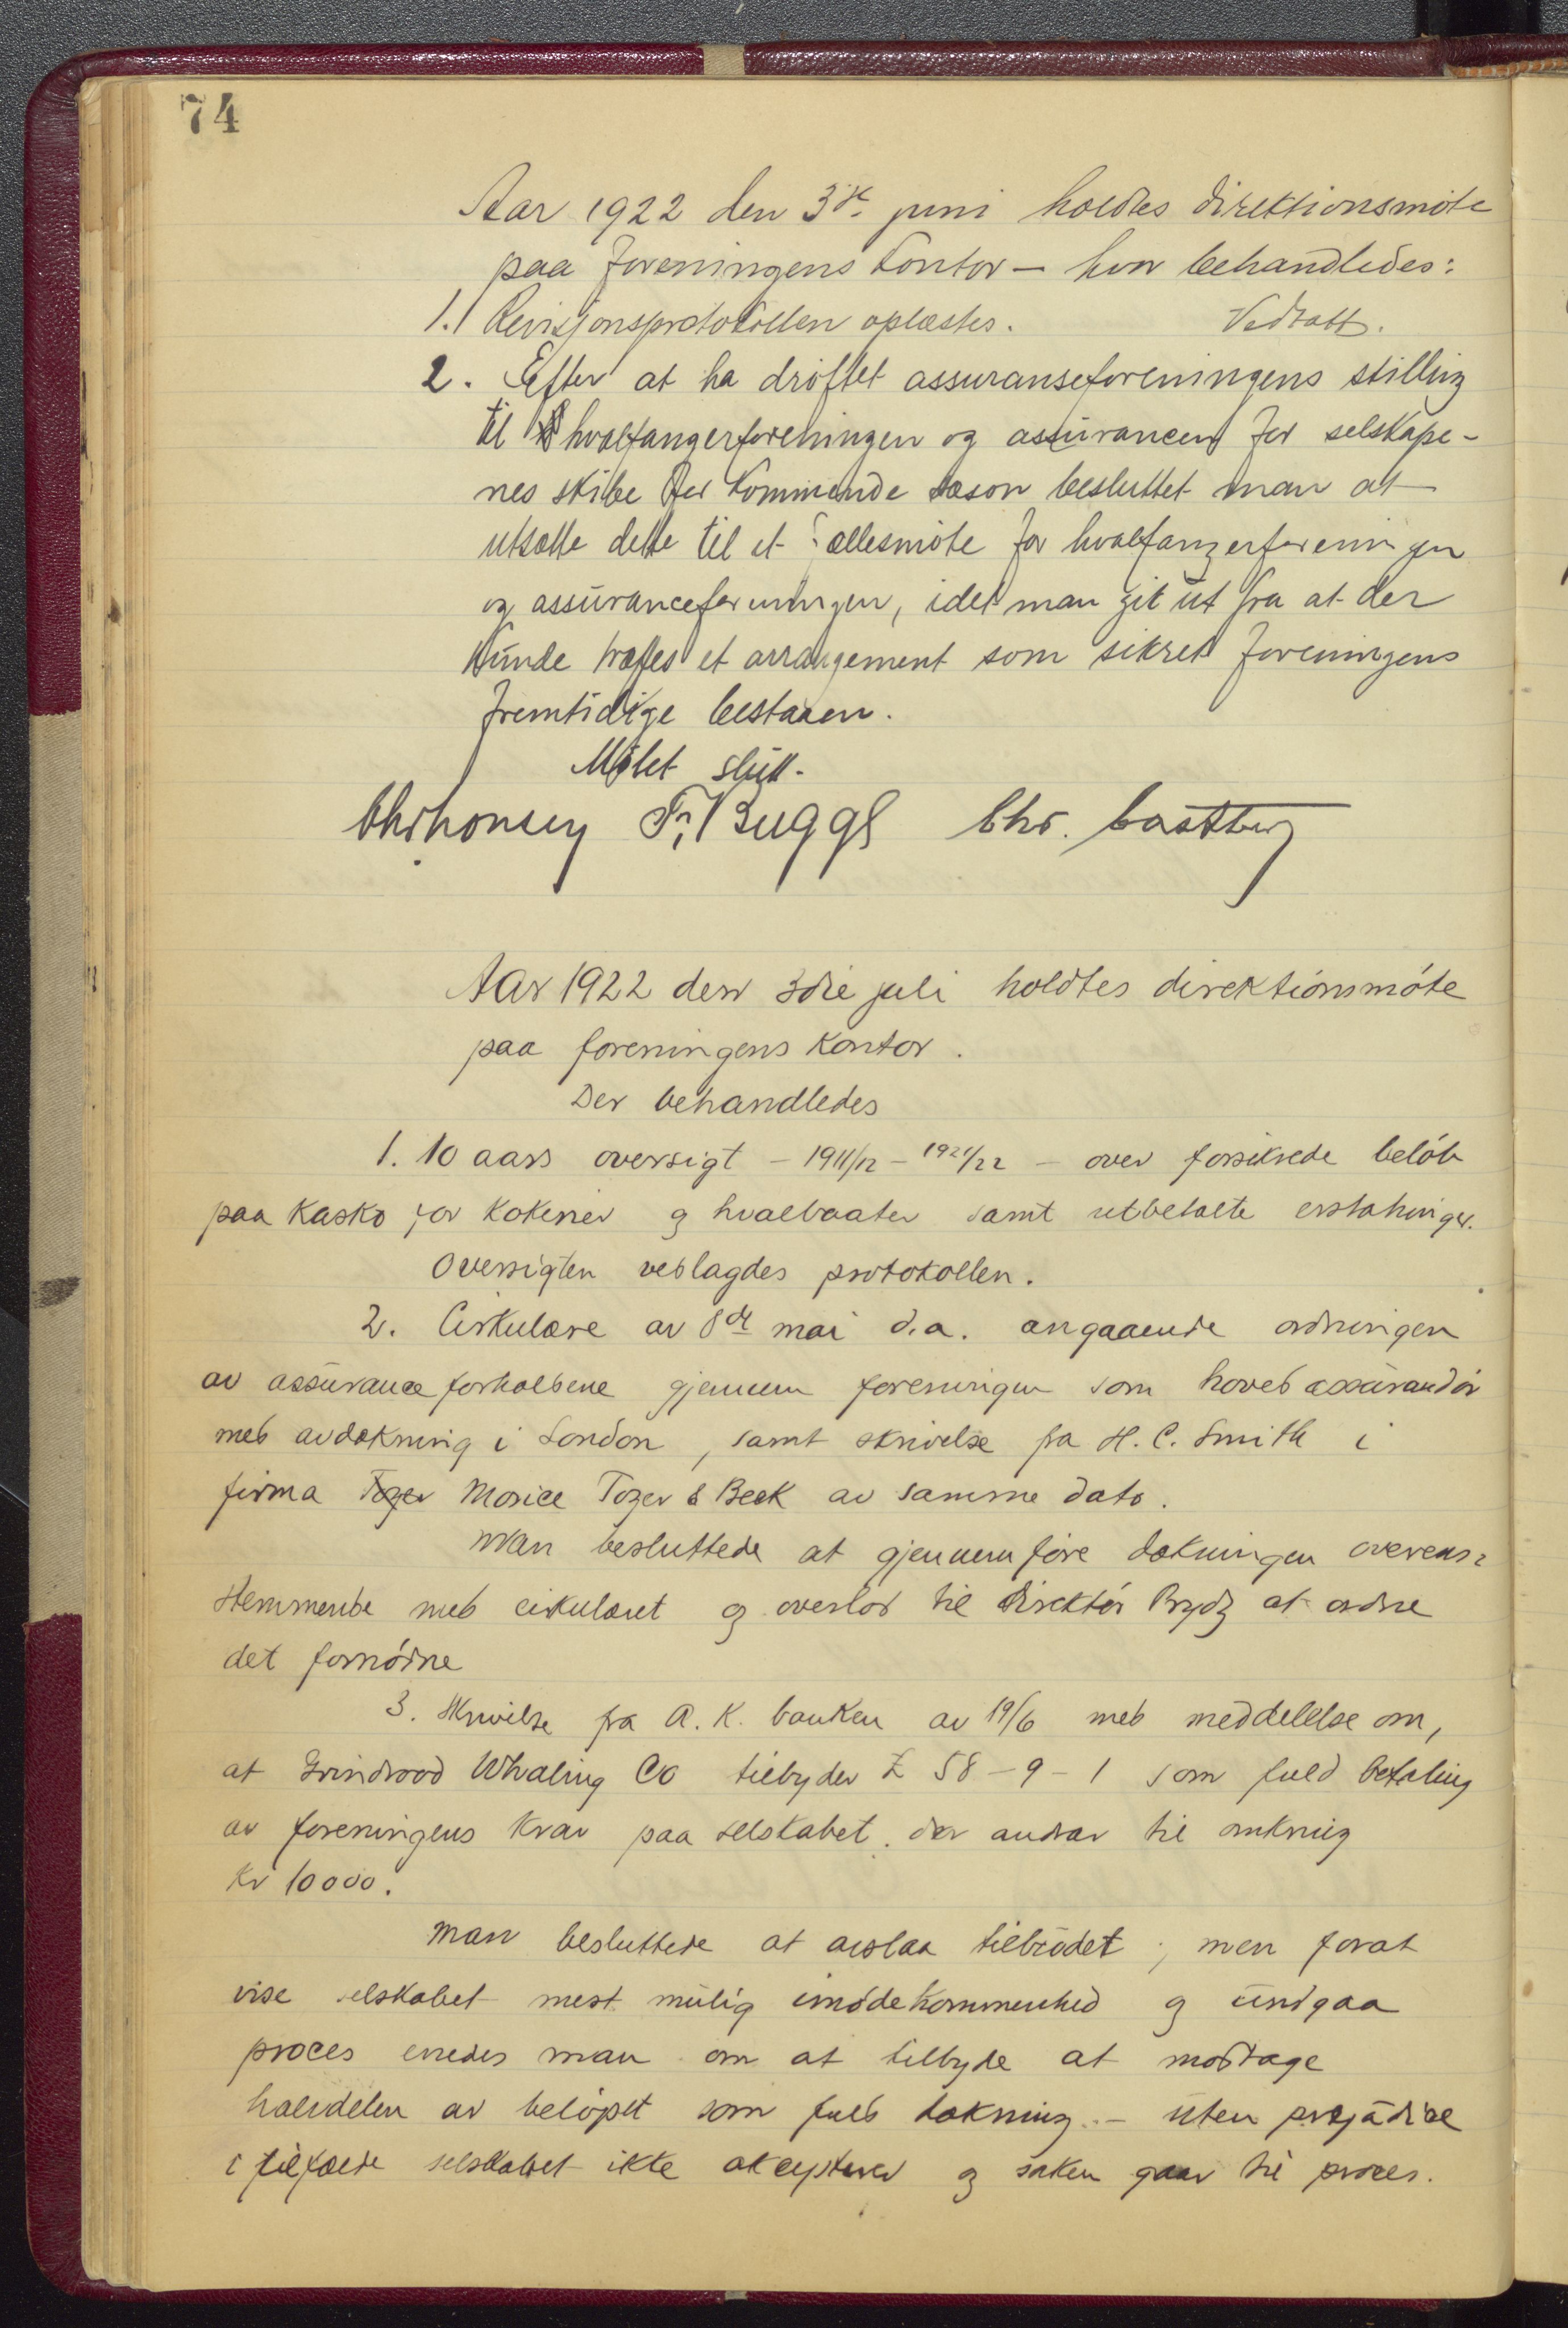 74
Aar 1922 den 3de juni holdtes direktionsmöte
paa foreningens kontor – hvor behandledes:
1. Revisjonsprotokollen oplæstes. Vedtatt.
2. Efter at ha dröftet assuranseforeningens stilling
til hvalfangerforeningen og assurancen for selskape-
nes skibe for kommende sæson besluttet man at
utsætte dette til et fællesmöte for hvalfangerforeningen
og assuranceforeningen, idet man git ut fra at der
kunde træffes et arrangement som sikret foreningens
fremtidige bestaaen.
Mötet slutt.
Fr. Bugge Chr. Castberg
Aar 1922 den 3die juli holdtes direktionsmöte
paa foreningens kontor.
Der behandledes
1. 10 aars oversigt – 1911/12 – 1921/22 – over forsikrede belöb
paa kasko for kokerier og hvalbaater samt utbetalte erstatninger.
Oversigten vedlagdes protokollen.
2. Cirkulære av 8de mai d.a. angaaende ordningen
av assuranceforholdene gjennem foreningen som hovedassurandör
med avdækning i London, samt skrivelse fra H. C. Smith i
firma Tozer Morice Tozer & Beck av samme dato.
Man besluttede at gjennemföre dækningen overens-
stemmende med cirkulæret og overlod til direktör Bryde at ordne
det fornödne
3. Skrivelse fra A. K. banken av 19/6 med meddelelse om,
at Grindrood Whaling Co tilbyder £ 58-9-1 som fuld betaling
av foreningens krav paa selskabet. der andrar til omkring
Kr 10000.
Man besluttede at avslaa tilbudet; men forat
vise selskabet mest mulig imödekommenhed og undgaa
proces enedes man om at tilbyde at modtage
halvdelen av belöpet som fuld dækning. – uten præjudice
i tilfælde selskabet ikke akcepterer og saken gaar til proces.